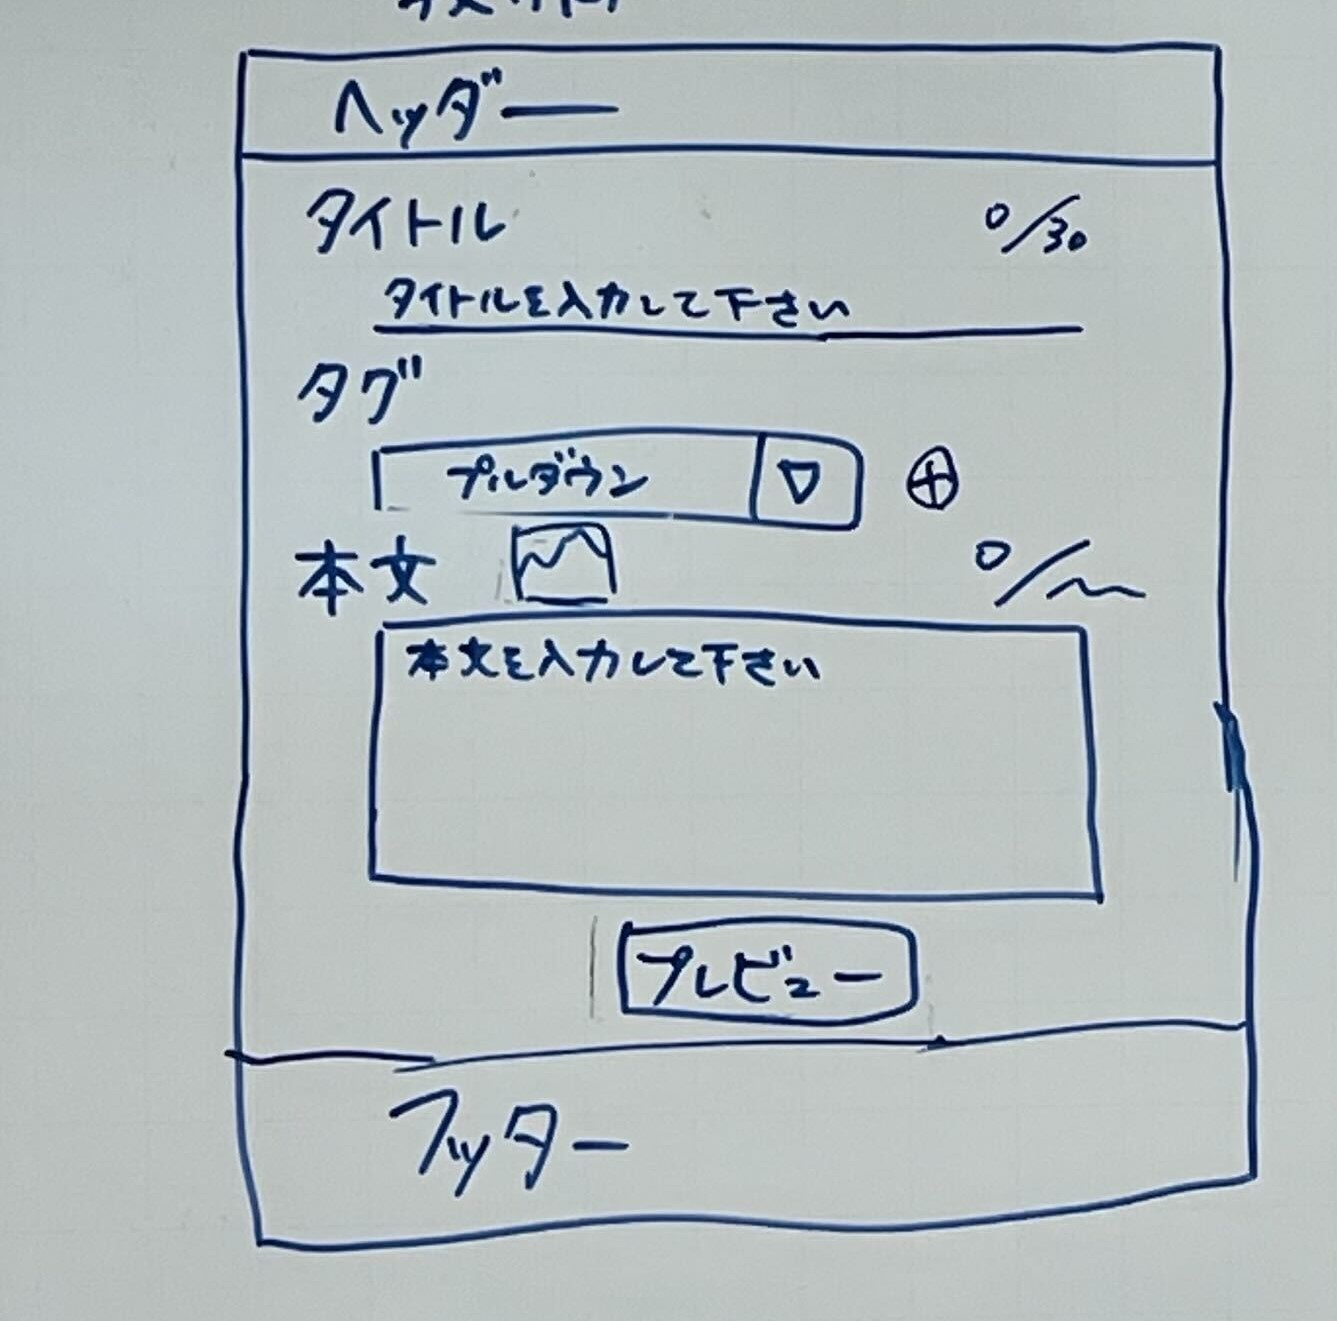 ヘッダー
タイトル 0/30
タイトルを入力して下さい
タグ
プルダウン
本文 0/
本文を入力して下さい
プレビュー
フッター